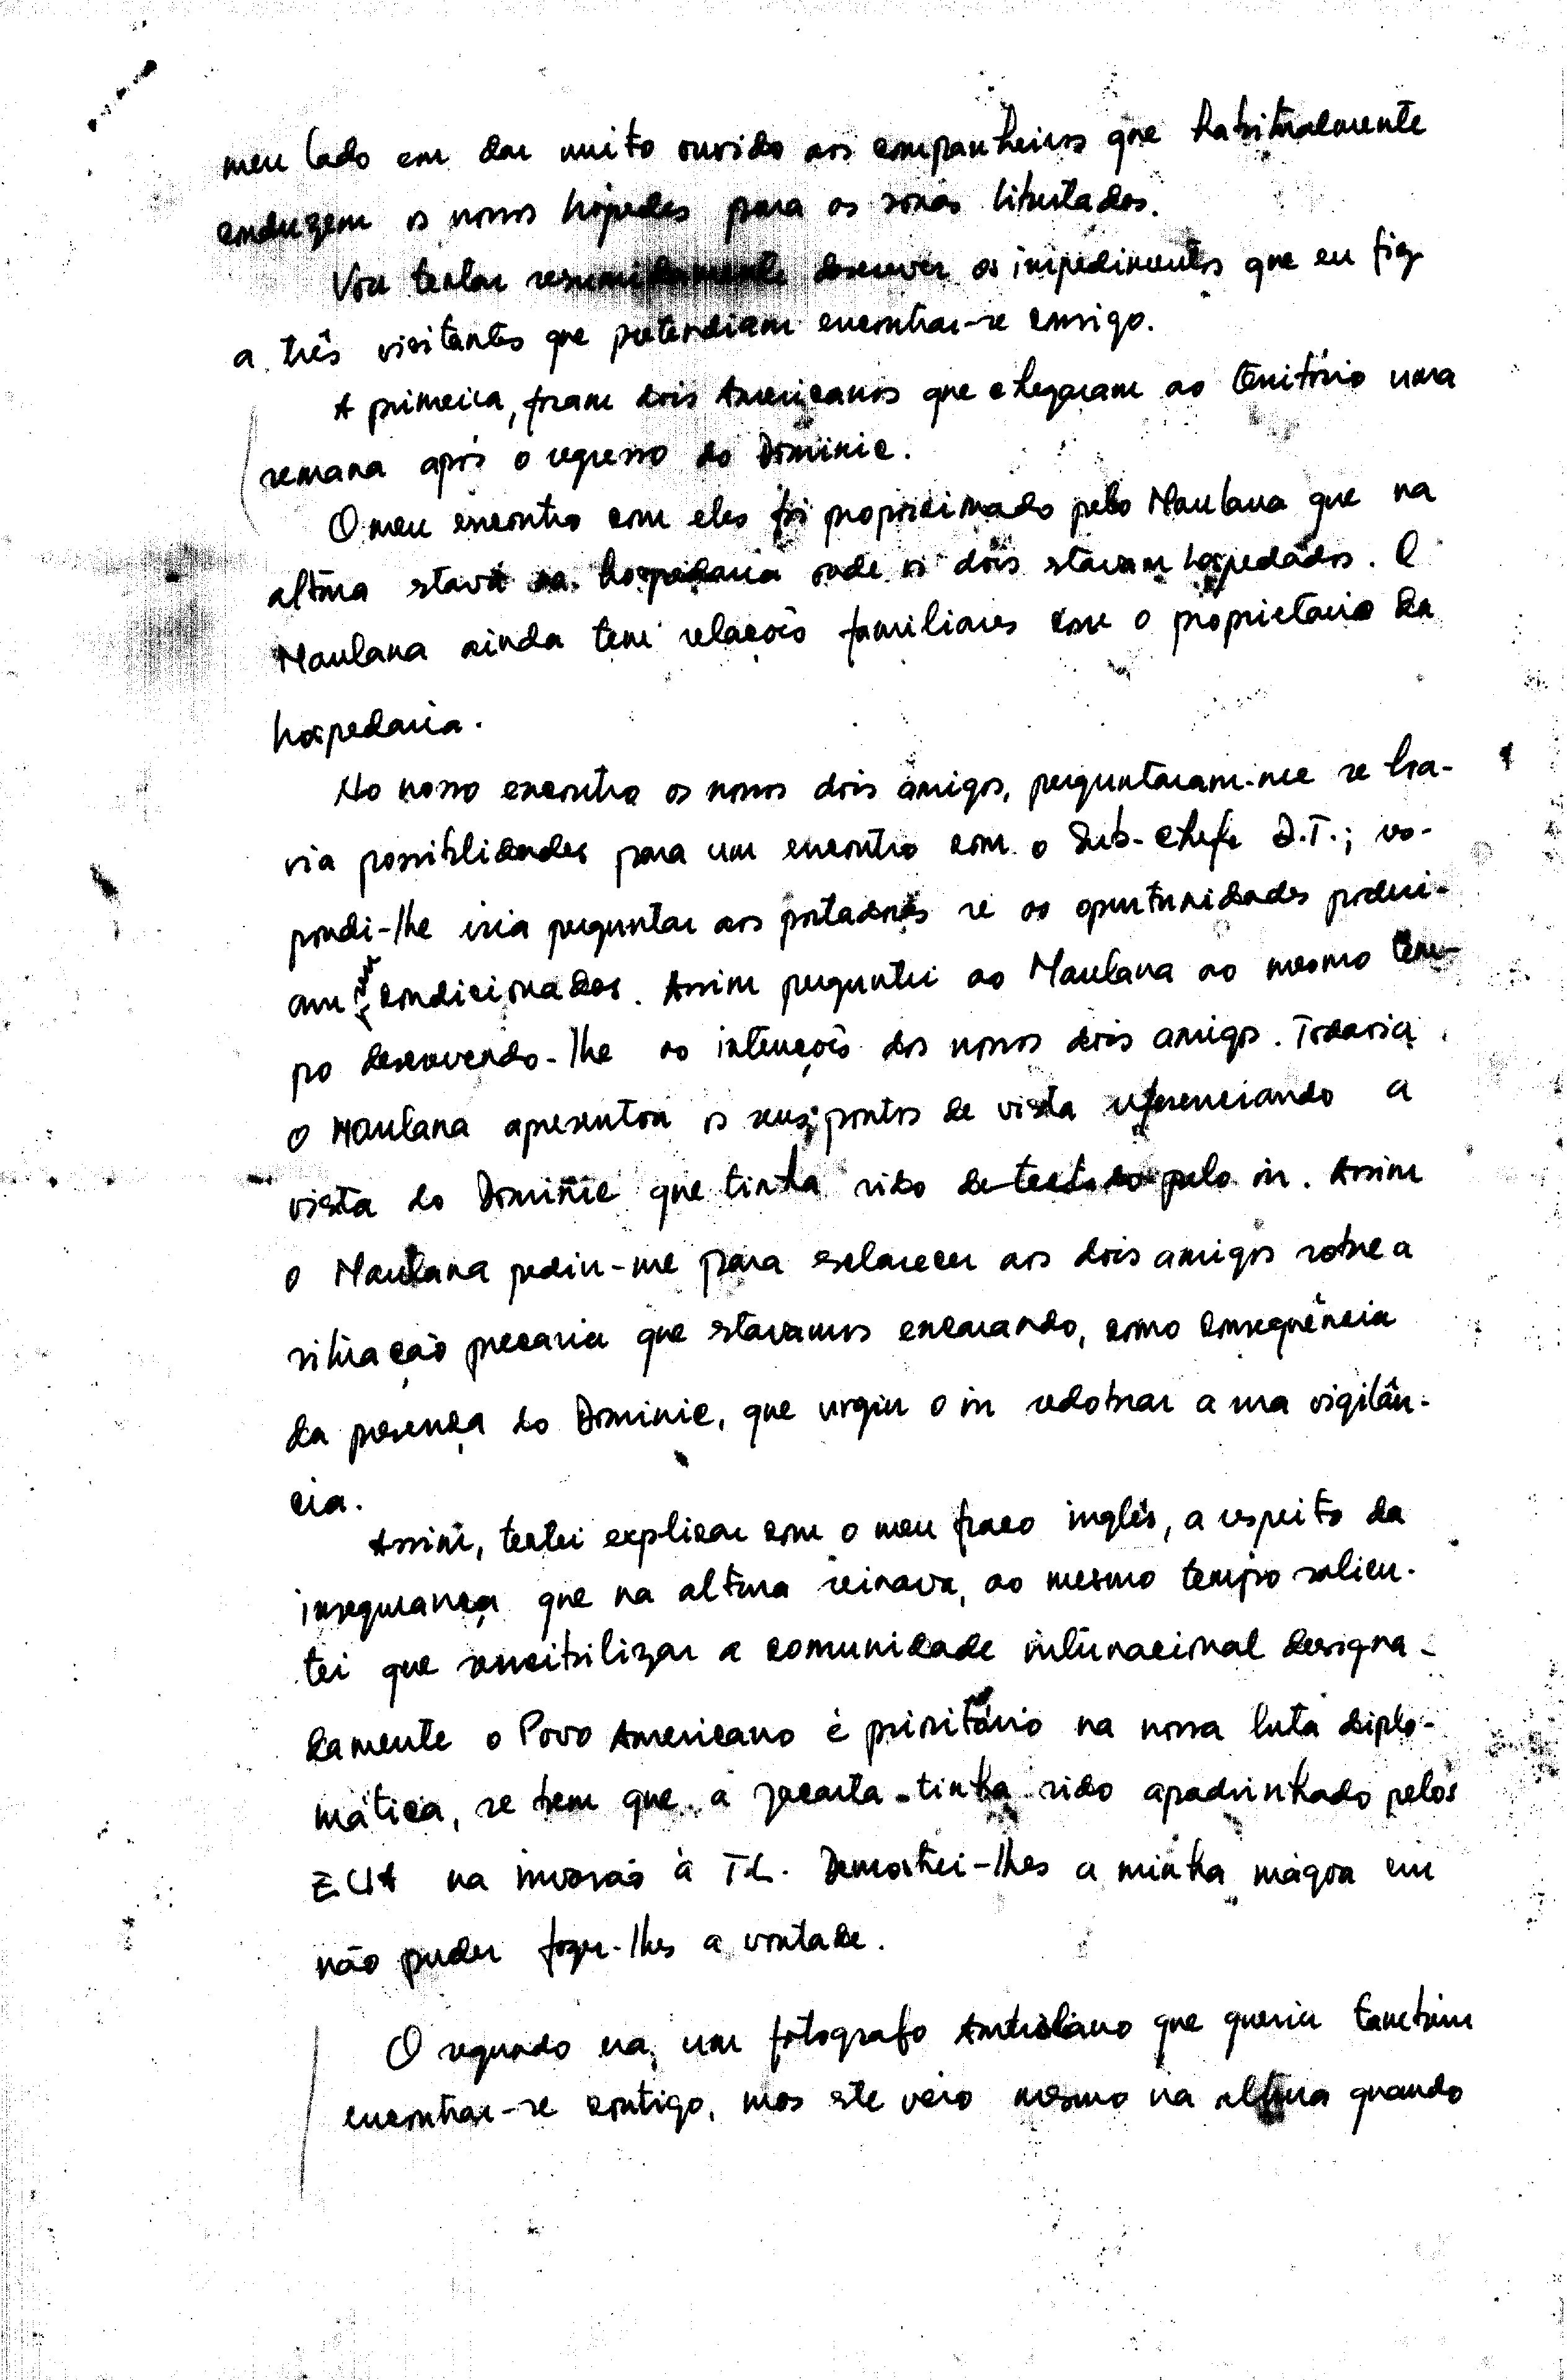 meu lado em dar muito ouvido aos companheiros que habitualmente
conduzem os nossos hóspedes para as zonas libertadas.
Vou tentar resumidamente descrever os impedimentos que eu fiz
a três visitantes que pretendiam encontrar-se consigo.
A primeira, foram dois Americanos que chegaram ao território uma
semana após o regresso do Dominic.
O meu encontro com eles foi proporcionado pelo Maulana que na
altura stava na hospedaria onde os dois stavam hospedados. O
Maulana ainda tem relações familiares com o proprietario da
hospedaria.
No nosso encontro os nossos dois amigos, perguntaram-me se ha-
via possiblidades para um encontro com o Sub-chefe D.T.; res-
pondi-lhe iria perguntar aos portadores se as oportunidades poderi-
am ser condicionadas. Assim perguntei ao Maulana ao mesmo tem-
po descrevendo-lhe as intenções dos nossos dois amigos. Todavia
o Maulana apresentou os seus pontos de vista referenciando a
visita do Dominic que tinha sido detectado pelo in. Assim
o Maulana pediu-me para esclarecer aos dois amigos sobre a
situação precaria que stavamos encarando, como consequência
da presença do Dominic, que urgiu o in redobrar a sua vigilân-
cia.
Assim, tentei explicar com o meu fraco inglês, a respeito da
insegurança que na altura reinava, ao mesmo tempo salien-
tei que sensibilizar a comunidade internacional designa-
damente o Povo Americano é prioritário na nossa luta diplo-
mática, se bem que a Jacarta tinha sido apadrinhado pelos
EUA na invasão à TL. Demostrei-lhes a minha mágoa em
não puder fazer-lhes a vontade.
O segundo era, um fotografo Australiano que queria também
encontrar-se contigo, mas ste veio mesmo na altura quando